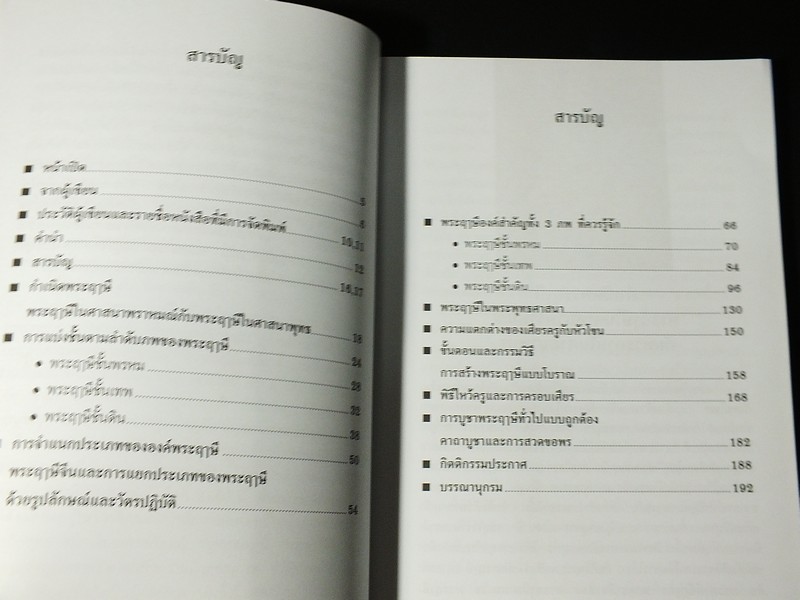 สารบัญ
■ หน้าเปิด
■ จากผู้เขียน 5
■ ประวัติผู้เขียนและรายชื่อหนังสือที่มีการจัดพิมพ์ 6
■ คำนำ 10,11
■ สารบัญ 12
■ กำเนิดพระฤาษี 16,17
พระฤาษีในศาสนาพราหมณ์กับพระฤาษีในศาสนาพุทธ 18
■ การแบ่งชั้นตามลำดับภพของพระฤาษี 24
• พระฤาษีชั้นพรหม 28
• พระฤาษีชั้นเทพ 32
• พระฤาษีชั้นดิน 38
การจำแนกประเภทขององค์พระฤาษี 50
พระฤาษีจีนและการแยกประเภทของพระฤาษี
ด้วยรูปลักษณ์และวัตรปฏิบัติ 54
สารบัญ
■ พระฤาษีองค์สำคัญทั้ง 3 ภพ ที่ควรรู้จัก 66
• พระฤาษีชั้นพรหม 70
• พระฤาษีชั้นเทพ 84
• พระฤาษีชั้นดิน 96
■ พระฤาษีในพระพุทธศาสนา 130
■ ความแตกต่างของเศียรครูกับหัวโขน 150
■ ขั้นตอนและกรรมวิธี
การสร้างพระฤาษีแบบโบราณ 158
■ พิธีไหว้ครูและการครอบเศียร 168
■ การบูชาพระฤาษีทั่วไปแบบถูกต้อง
คาถาบูชาและการสวดขอพร 182
■ กิตติกรรมประกาศ 188
■ บรรณานุกรม 192